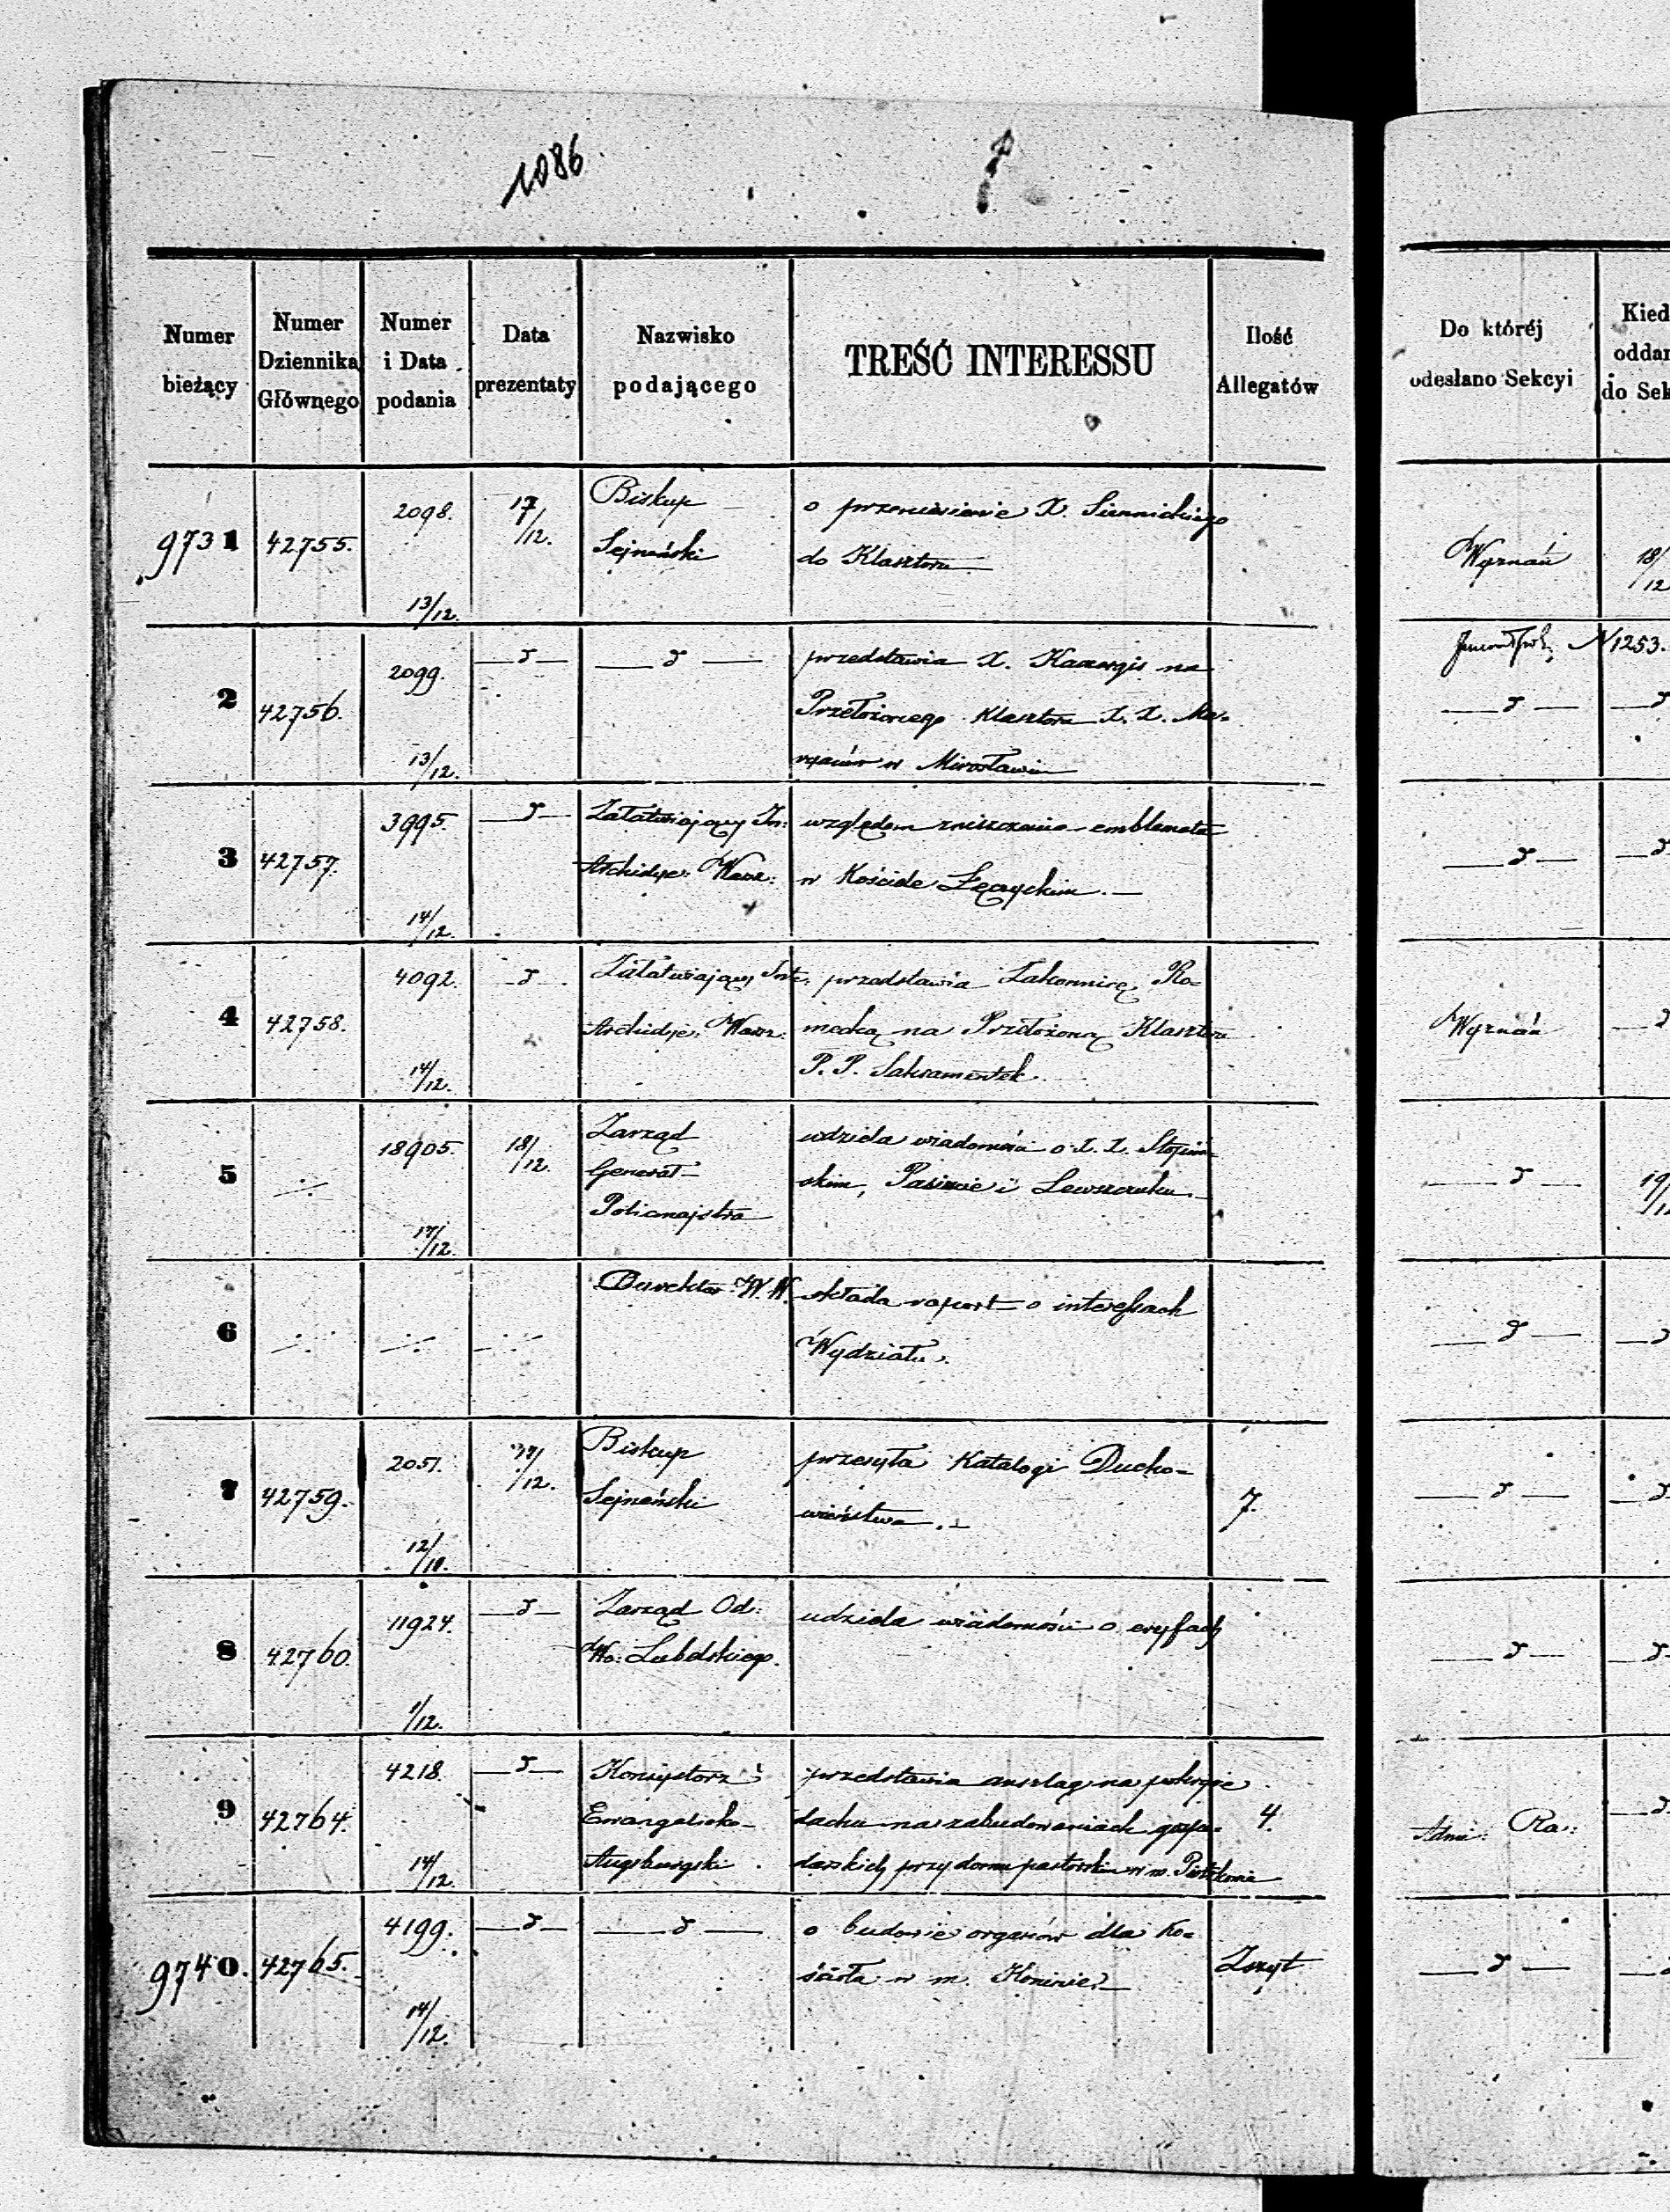 1086
Numer bieżący
Numer Dziennika Głównego
Numer i Data podania
Data prezentaty
Nazwisko podającego
TREŚĆ INTERESSU
Ilość Allegatów
Do któréj odesłano Sekcyi
Kied
oddan
do Sek
9731 42755. 2098. 13/12. 17/12.
Biskup
Sejneński
o przeniesienie X. Siennickiego
do Klasztoru
Wyznań 18/12
N 1253.
2 42756. 2099. 13/12. — d — — d —
przedstawia X. na
Przełożonego Klasztoru X. X. Ma-
ryanów w Mirosławiu
— d — — d
3 42757. 3995. 14/12. — d —
Załatwiający In:
Archidye: Warz:
względem zniszczenia emblemata
w Kościele Łęczyckim. —
— d — — d
4 42758. 4092. 14/12. — d —
Załatwiający Inte:
Archidye: Warsz:
przedstawia Zakonnicę Ro-
mecką na Przełożoną Klasztoru
P. P. Sakramentek
Wyznań — d
5 18905. 17/12. 18/12.
Zarząd
Generał-
Policmajstra
udziela wiadomości o X. X.
skim, i
— d — 19/12
6
Dyrektor W. W.
składa raport o interessach
Wydziału.
— d — — d
7 42759. 2051. 12/10. 17/12.
Biskup
Sejneński
przesyła Katalogi Ducho-
wieństwa. —
7.
— d — — d
8 42760. 11924. 1/12. — d —
Zarząd Od:
Wo: Lubelskiego.
udziela wiadomości o
— d — — d
9 42764. 4218. 14/12. — d —
Konsystorz
Ewangelicko-
Augsburgski.
przedstawia anszlag na pokrycie
dachu na zabudowaniach gospo-
darskich przy domu pastorskim w m. Piotrkowie
4.
Admi: Ra: — d
9740. 42765. 4199. 14/12. — d — — d —
o budowie organów dla Ko-
ścioła w m. Koninie. —
Zszyt
— d —